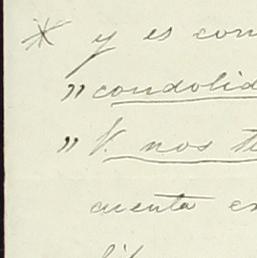 * y es con
" condolid
" V. nos te
cuenta es